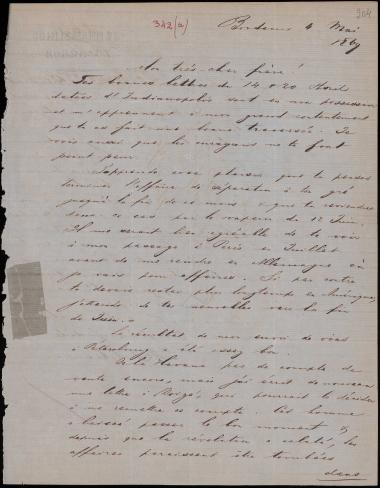 342(a)
304
Bordeaux 4 Mai
1869
Mon très cher frère!
Tes bonnes lettres du 14 & 20 Avril
datées d'Indianopolis sont en ma possession
et m'apprennent à mon grand contentement
que tu as fait une bonne traversée. Je
vois aussi que les ouragans ne te font
point peur.
J'apprends avec plaisir que tu penses
terminer l'affaire de séparation à ton gré
jusqu'à la fin de ce mois & que tu reviendras
dans ce cas par le vapeur du 12 Juin.
Il me serait bien agréable de te voir
à mon passage à Paris en Juillet
avant de me rendre en Allemagne où
je vais pour affaires. Si par contre
tu devais rester plus longtemps en Amérique,
j'attends de tes nouvelles vers la fin
de Juin.
Le résultat de mon envoi de vins
à Pétersbourg a été assez bon.
De la Havane pas de compte de
vente encore, mais j'ai écrit de nouveau
une lettre à qui pourrait le décider
à me remettre ce compte. Cet homme
a laissé passer le bon moment &
depuis que la révolution a éclaté, les
affaires paraissent être tombées
dans